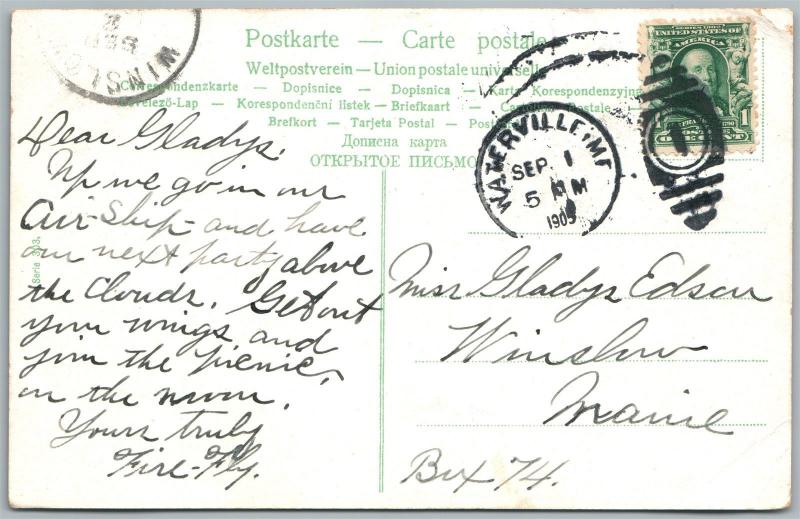 WINSLOW
SEP
2
Postkarte — Carte postale
Weltpostverein — Union postale universelle
Correspondenzkarte – Dopisnice – Dopisnica – Karta Korespondenzyjna
Levelező-Lap – Korespondenční listek – Briefkaart – Postale
Brefkort – Tarjeta Postal –
Дописна карта
ОТКРЫТОЕ ПИСЬМО
WATERVILLE, ME.
SEP. 1
5 PM
SERIES 1902
UNITED STATES OF
AMERICA
POSTAGE
1
ONE CENT
Serie 303.
Dear Gladys,
Up we go in our
Air-Ship- and have
our next party above
the Clouds. Get out
your wings, and
join the picnic,
on the moon.
Yours truly
Fire-Fly.
Miss Gladys Edson
Winslow
Maine
Box 74.